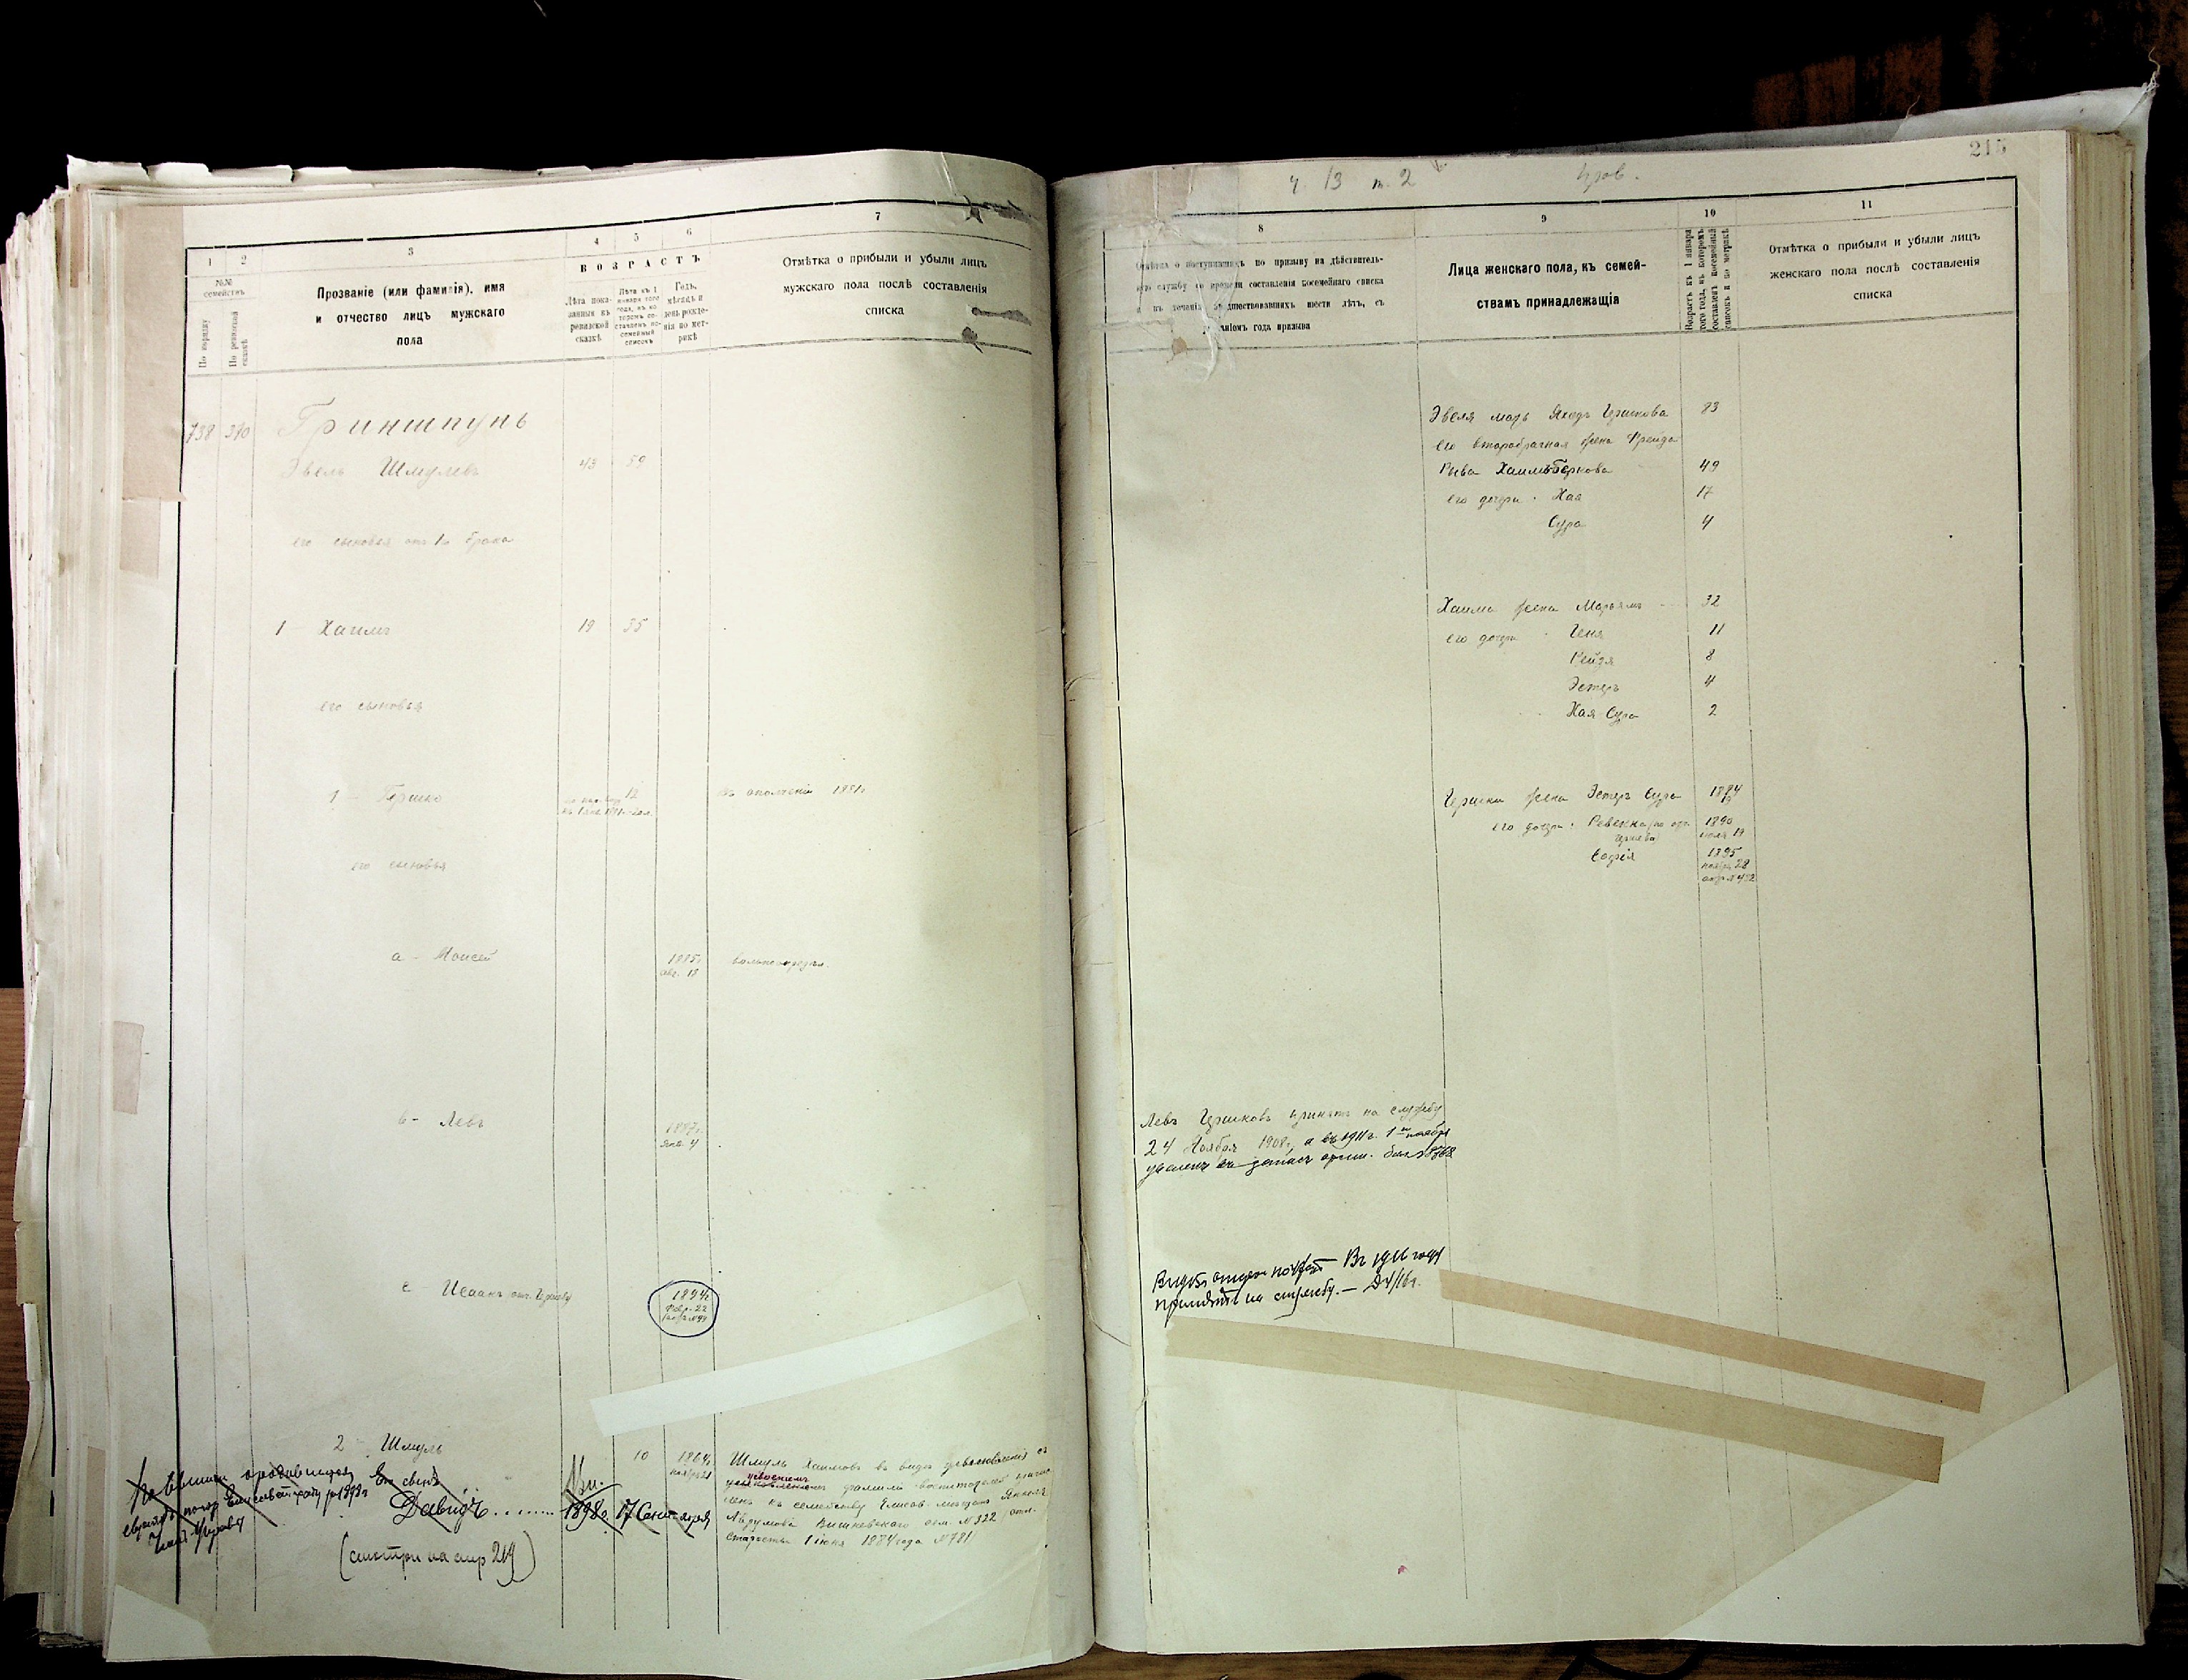 215
ч 13 т. 2
1
2
3
4
5
6
7
№№
семействъ
По порядку
По ревизской
сказкѣ
Прозваніе (или фамилія), имя
и отчество лицъ мужскаго
пола
ВОЗРАСТЪ
Лѣта пока-
занныя въ
ревизской
сказкѣ
Лѣта къ 1
января того
года, въ ко-
торомъ со-
ставленъ по-
семейный
списокъ
Годъ,
мѣсяцъ и
день рожде-
нія по мет-
рикѣ
Отмѣтка о прибыли и убыли лицъ
мужскаго пола послѣ составленія
списка
738 390 Гриншпунъ
Эвель Шмулевъ 43 59
его сыновья отъ 1го брака
1 - Хаимъ 19 35
его сыновья
1 - Гершко 12 въ ополченіи 1881г
его сыновья
а - Моисей 1885г вольноопредѣл.
авг. 18
в - Левъ 1887г.
янв. 4
с - Исаакъ 1894г.
февр. 22
2 Шмуль 10 1864
ноября 21
Давидъ 1898г. 17 Сентября
(смотри на стр 219)
Шмуль Хаимовъ въ виду усыновленія съ
усвоеніемъ
фамиліи воспитателя
къ семейству Елисав. мѣщан.
Аврумова Вишневскаго №322
Старосты 1 іюня 1884 года №781
8
9
10
11
Отмѣтка о поступившихъ по призыву на дѣйствитель-
ную службу со времени составленія посемейнаго списка
и въ теченіи предшествовавшихъ шести лѣтъ, съ
указаніемъ года призыва
Лица женскаго пола, къ семей-
ствамъ принадлежащія
Возрастъ къ 1 января
того года, въ которомъ
составленъ посемейный
списокъ и по метрикѣ
Отмѣтка о прибыли и убыли лицъ
женскаго пола послѣ составленія
списка
Эвеля мать Гершкова 83
его второбрачная жена Фрейда
Рива Хаимъ-Беркова 49
его дочери: Хая 17
Сура 4
Хаима жена Марьямъ 32
его дочери: Геня 11
Рейзя 8
Эстеръ 4
Хая Сура 2
Гершки жена Эстеръ Сура
его дочери: Ревекка 1890
Софія 1895
ноября 28
Левъ Гершковъ принятъ на службу
24 Ноября 1908г, а въ 1911 г. 1го ноября
уволенъ въ запасъ арміи.
Въ 1916 году
принятъ на службу. —